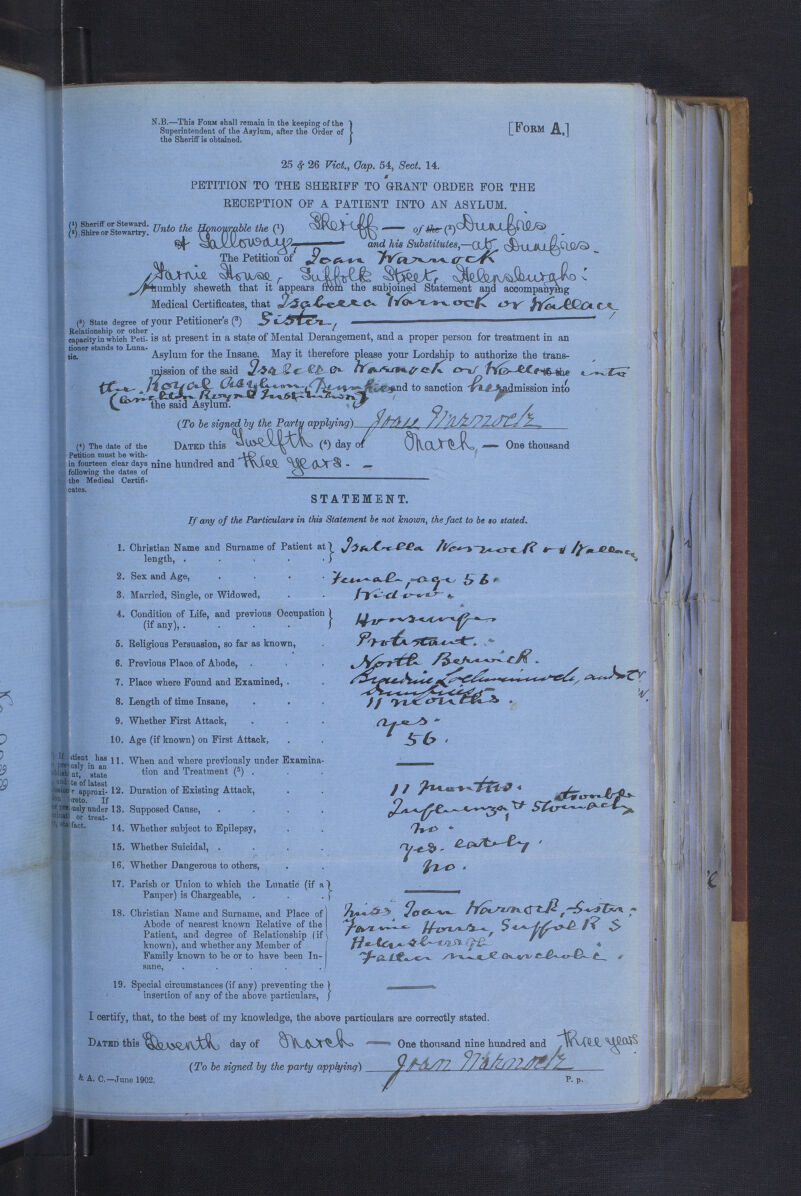 N.B.—This Form shall remain in the keeping of the
Superintendent of the Asylum, after the Order of
the Sheriff is obtained.
[Form A.]
25 & 26 Vict., Cap. 54, Sect. 14.
PETITION TO THE SHERIFF TO GRANT ORDER FOR THE
RECEPTION OF A PATIENT INTO AN ASYLUM.
(¹) Sheriff or Steward.
(²) Shire or Stewartry.
Unto the Honourable the (¹) Sheriff — of the (²) Dumfries
& Galloway, — and his Substitutes, — at Dumfries —
The Petition of Joan Warnock
House, Suffolk Street, Helensburgh:
humbly sheweth that it appears from the subjoined Statement and accompanying
Medical Certificates, that Isabella Warnock or Wallace,
(³) State degree of
Relationship or other
capacity in which Peti-
tioner stands to Luna-
tic.
your Petitioner's (³) Sister,
is at present in a state of Mental Derangement, and a proper person for treatment in an
Asylum for the Insane. May it therefore please your Lordship to authorize the trans-
mission of the said Isabella Warnock or Wallace into
the Royal Asylum, Dumfries and to sanction her admission into
(Crichton Royal Institution)
the said Asylum.
(To be signed by the Party applying) Joan Warnock
(⁴) The date of the
Petition must be with-
in fourteen clear days
following the dates of
the Medical Certifi-
cates.
Dated this Twelfth (⁴) day of March, — One thousand
nine hundred and three years. —
STATEMENT.
If any of the Particulars in this Statement be not known, the fact to be so stated.
1. Christian Name and Surname of Patient at
length, . Isabella Warnock or Wallace
2. Sex and Age, Female, age 56.
3. Married, Single, or Widowed, Widow.
4. Condition of Life, and previous Occupation
(if any), . Housewife
5. Religious Persuasion, so far as known, Protestant.
6. Previous Place of Abode, North Berwick.
7. Place where Found and Examined, Lochwinnoch, and at
Dumfries
8. Length of time Insane, 11 months.
9. Whether First Attack, yes.
10. Age (if known) on First Attack, 56.
11. When and where previously under Examina-
tion and Treatment (⁵) . —
12. Duration of Existing Attack, 11 months.
13. Supposed Cause, Influenza, & Stomach trouble
14. Whether subject to Epilepsy, no.
15. Whether Suicidal, yes. lately.
16. Whether Dangerous to others, no.
17. Parish or Union to which the Lunatic (if a
Pauper) is Chargeable, —
18. Christian Name and Surname, and Place of
Abode of nearest known Relative of the
Patient, and degree of Relationship (if
known), and whether any Member of
Family known to be or to have been In-
sane,
Miss Joan Warnock, Sister,
House, Suffolk S
Helensburgh
Father melancholic.
19. Special circumstances (if any) preventing the
insertion of any of the above particulars, —
I certify, that, to the best of my knowledge, the above particulars are correctly stated.
Dated this day of March — One thousand nine hundred and three years
(To be signed by the party applying) Joan Warnock
& A. C.—June 1902.
P. p.